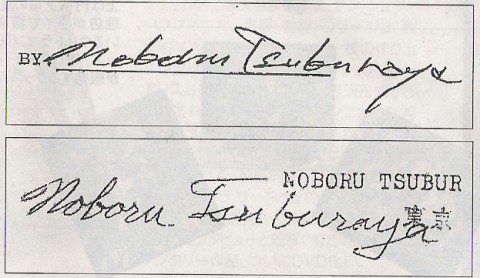 BY. Noboru Tsuburaya
NOBORU TSUBUR
Noboru Tsuburaya
東京